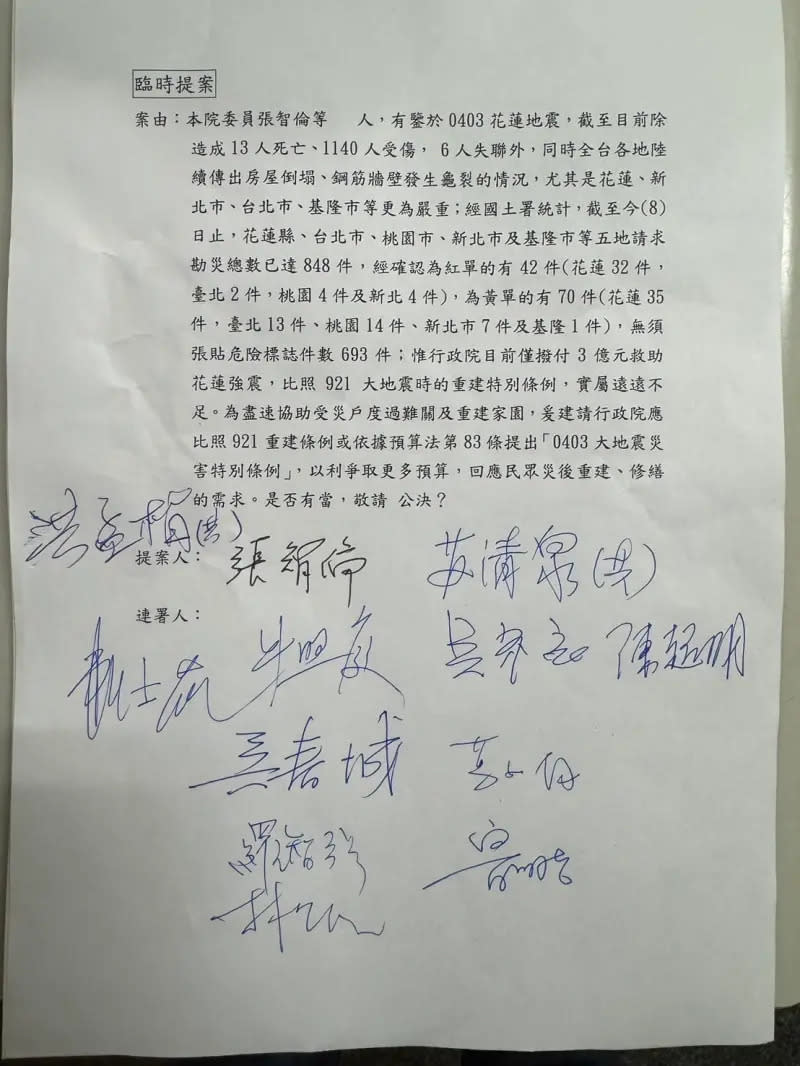 臨時提案
案由：本院委員張智倫等　　人，有鑒於0403花蓮地震，截至目前除
造成13人死亡、1140人受傷， 6人失聯外，同時全台各地陸
續傳出房屋倒塌、鋼筋牆壁發生龜裂的情況，尤其是花蓮、新
北市、台北市、基隆市等更為嚴重；經國土署統計，截至今(8)
日止，花蓮縣、台北市、桃園市、新北市及基隆市等五地請求
勘災總數已達848件，經確認為紅單的有42件(花蓮32件，
臺北2件，桃園4件及新北4件)，為黃單的有70件(花蓮35
件，臺北13件、桃園14件、新北市7件及基隆1件)，無須
張貼危險標誌件數693件；惟行政院目前僅撥付3億元救助
花蓮強震，比照921大地震時的重建特別條例，實屬遠遠不
足。為盡速協助受災戶度過難關及重建家園，爰建請行政院應
比照921重建條例或依據預算法第83條提出「0403大地震災
害特別條例」，以利爭取更多預算，回應民眾災後重建、修繕
的需求。是否有當，敬請 公決？
洪孟楷(洪)
提案人： 張智倫 蘇清泉(洪)
連署人：
陳超明
羅智強